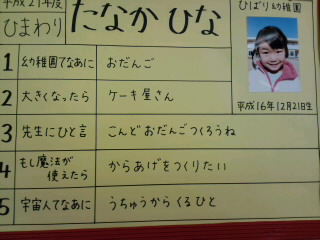 平成21年度
ひまわり
たなか ひな
ひばり幼稚園
平成16年12月21日生
1 幼稚園てなあに おだんご
2 大きくなったら ケーキ屋さん
3 先生にひと言 こんどおだんごつくろうね
4 もし魔法が
使えたら からあげをつくりたい
5 宇宙人てなあに うちゅうからくるひと